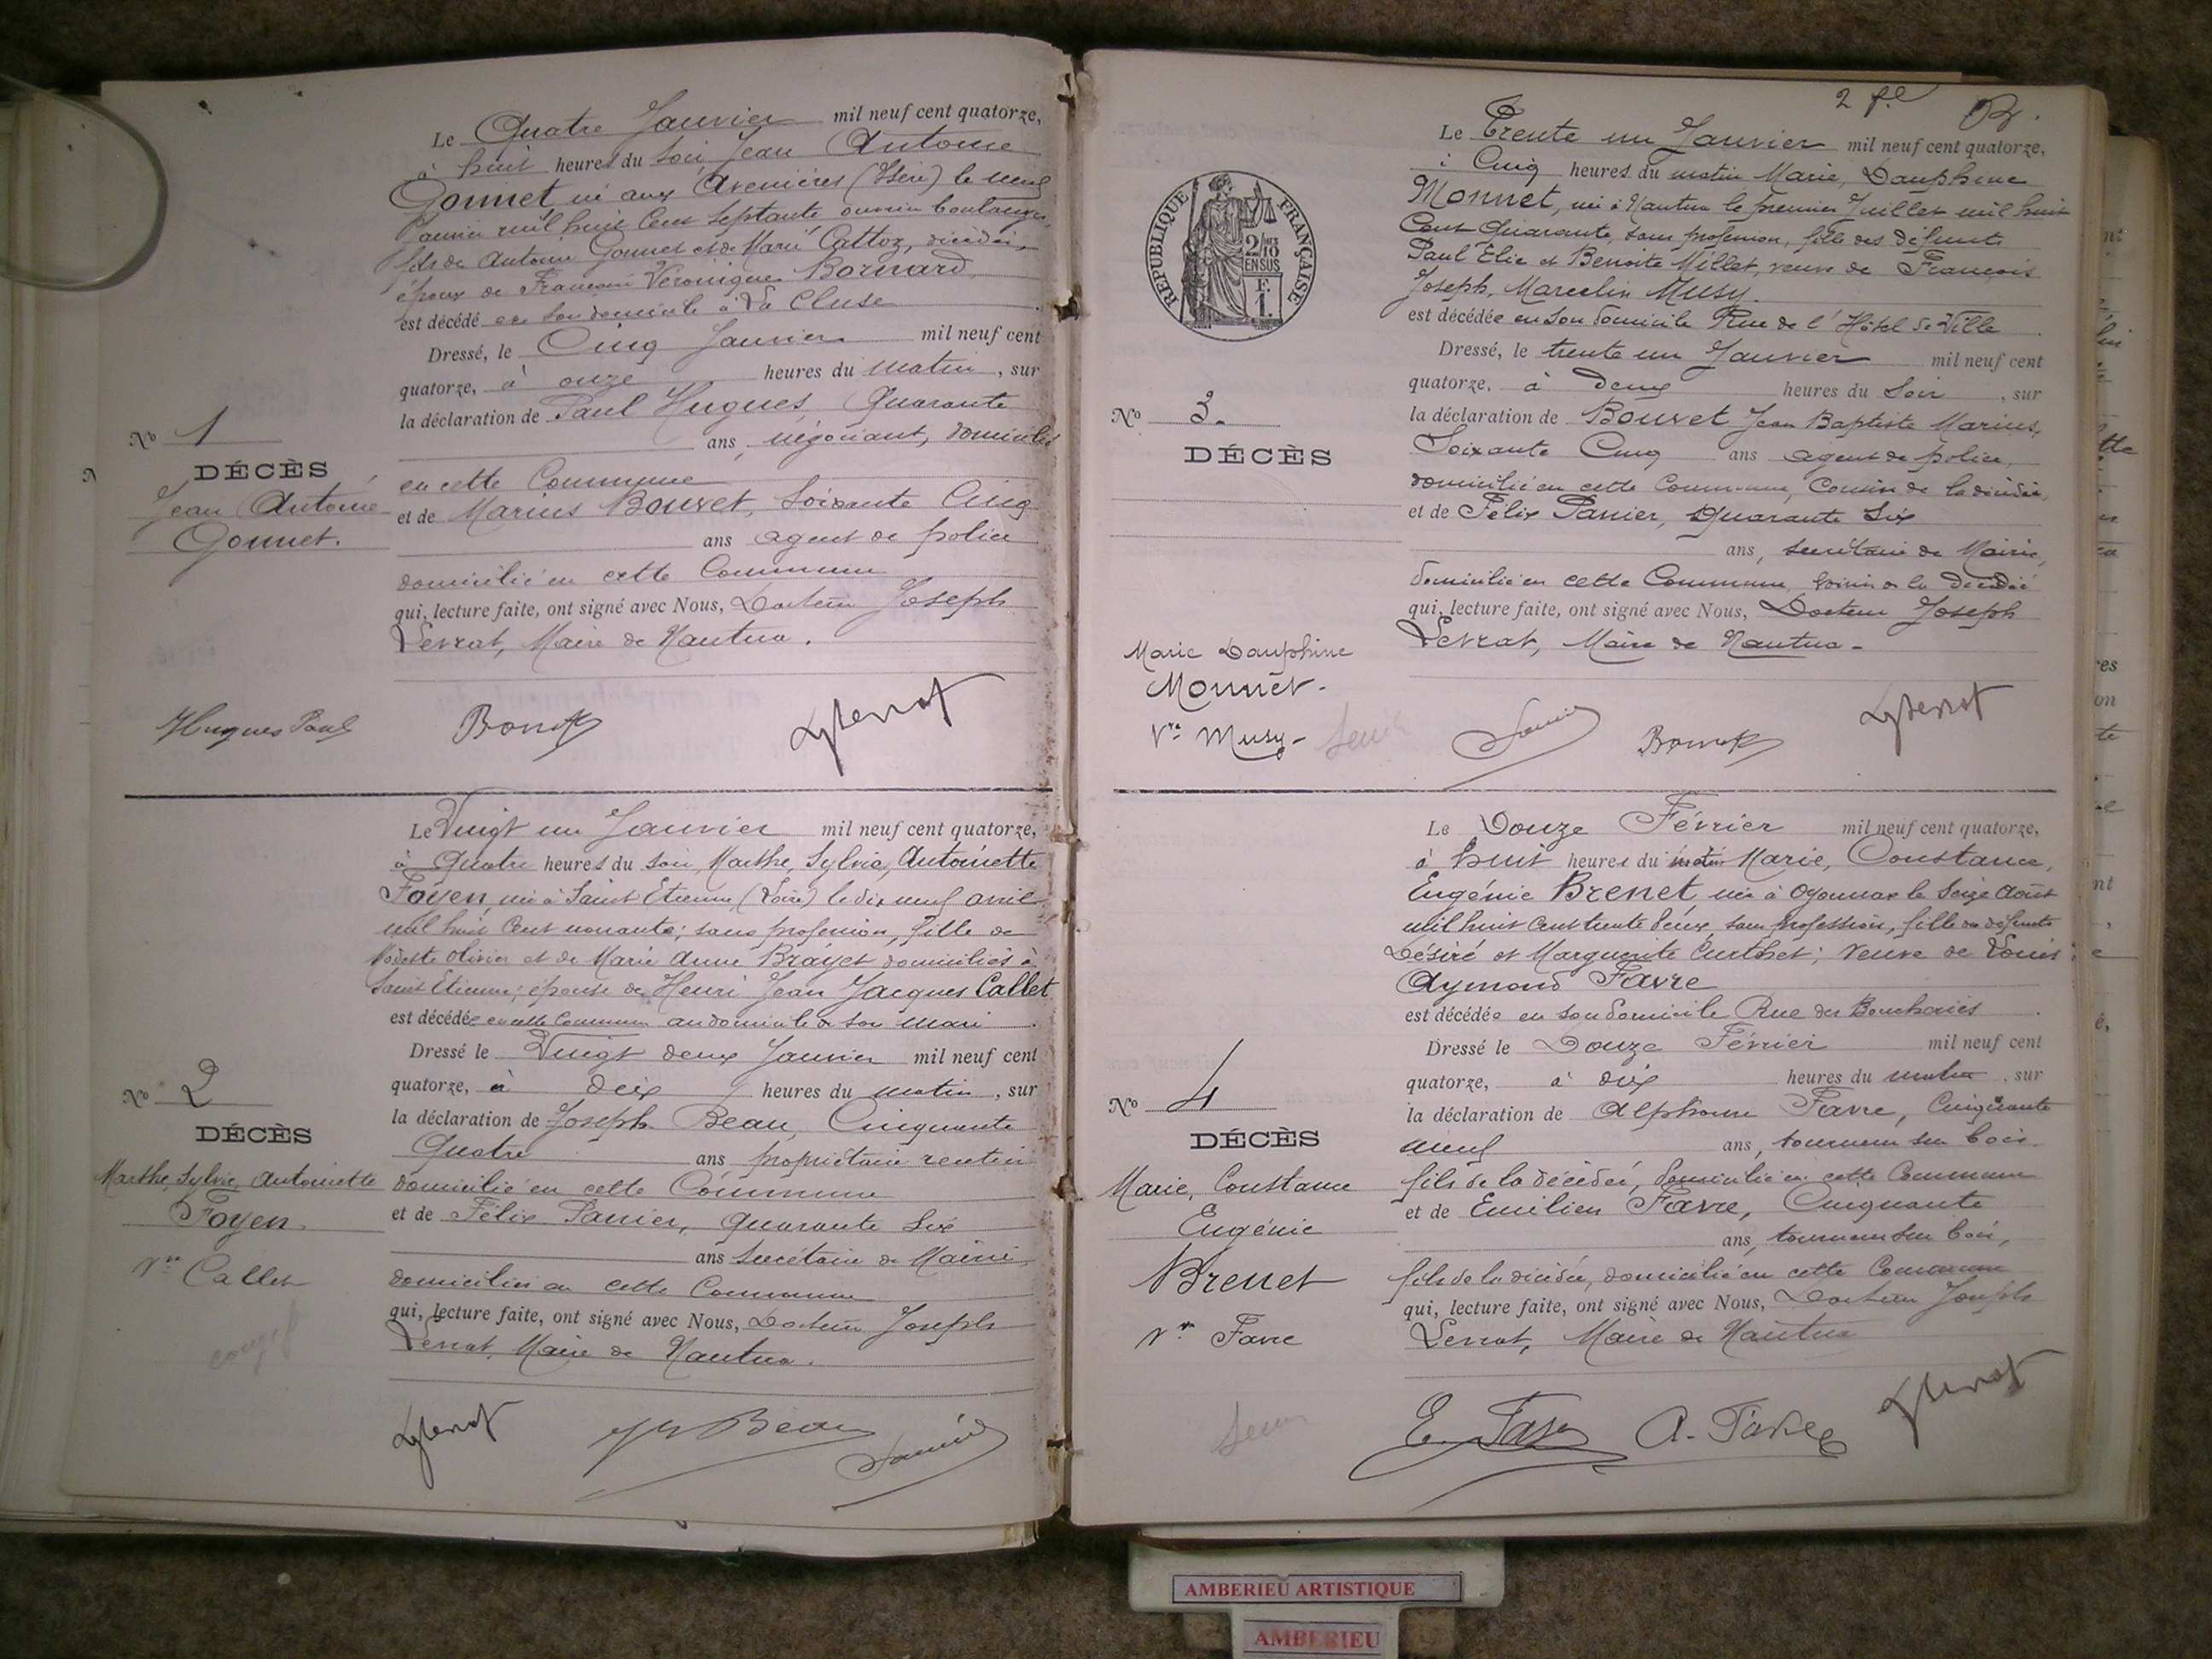 Le Quatre Janvier mil neuf cent quatorze,
à huit heures du soir Jean Antoine
Gonnet né aux Avenières (Isère) le neuf
Janvier mil huit cent septante, ouvrier boulanger,
fils de Antoine Gonnet et de Marie Cattoz, décédés,
époux de Françoise Véronique Bornard
est décédé en son domicile à La Cluse
Dressé, le Cinq Janvier mil neuf cent
quatorze, à onze heures du matin, sur
la déclaration de Paul Hugues, Quarante
ans, négociant, domicilié
en cette Commune
et de Marius Bouvet, Soixante Cinq
ans agent de police
domicilié en cette Commune
qui, lecture faite, ont signé avec Nous, Docteur Joseph
Levrat, Maire de Nantua.
No 1
DÉCÈS
Jean Antoine
Gonnet.
Hugues Paul
Le Vingt un Janvier mil neuf cent quatorze,
à Quatre heures du soir, Marthe, Sylvie, Antoinette
Foyen, née à Saint Etienne (Loire) le dix neuf avril
mil huit cent nonante; sans profession, fille de
Modeste Olivier et de Marie Anne Brayet domiciliés à
Saint Etienne; épouse de Henri Jean Jacques Callet
est décédée en cette Commune au domicile de son mari
Dressé le Vingt deux Janvier mil neuf cent
quatorze, à dix heures du matin, sur
la déclaration de Joseph Beau, Cinquante
Quatre ans, propriétaire rentier
domicilié en cette Commune
et de Félix Panier, Quarante Six
ans secrétaire de Mairie
domicilié en cette Commune
qui, lecture faite, ont signé avec Nous, Docteur Joseph
Levrat, Maire de Nantua.
No 2
DÉCÈS
Marthe, Sylvie, Antoinette
Foyen
Callet
Beau
2 fe
RÉPUBLIQUE FRANÇAISE
2/10
EN SUS
F.
1.
Le Trente un Janvier mil neuf cent quatorze,
à Cinq heures du matin Marie, Dauphine
Monnet, née à Nantua le premier Juillet mil huit
Cent Quarante, sans profession, fille des défunts
Paul Elie et Benoite Millet, veuve de François
Joseph, Marcelin Musy.
est décédée en son domicile Rue de l'Hôtel de Ville
Dressé, le trente un Janvier mil neuf cent
quatorze, à deux heures du Soir, sur
la déclaration de Bouvet Jean Baptiste Marius,
Soixante Cinq ans agent de police,
domicilié en cette Commune, Cousin de la décédée,
et de Félix Panier, Quarante Six
ans, secrétaire de Mairie,
domicilié en cette Commune, voisin de la décédée
qui, lecture faite, ont signé avec Nous, Docteur Joseph
Levrat, Maire de Nantua.
No 3.
DÉCÈS
Marie Dauphine
Monnet.
Vve Musy
Le Douze Février mil neuf cent quatorze,
à huit heures du matin Marie, Constance,
Eugénie Brenet, née à Oyonnax le Seize Août
mil huit cent trente deux, sans profession, fille de défunts
Désiré et Marguerite Curthet; Veuve de Louis
Aymond Favre
est décédée en son domicile Rue des Boucheries
Dressé le Douze Février mil neuf cent
quatorze, à dix heures du matin, sur
la déclaration de Alphonse Favre, Cinquante
neuf ans, tourneur sur bois
fils de la décédée, domicilié en cette Commune
et de Emilien Favre, Cinquante
ans, tourneur sur bois,
fils de la décédée, domicilié en cette Commune
qui, lecture faite, ont signé avec Nous, Docteur Joseph
Levrat, Maire de Nantua
No 4
DÉCÈS
Marie, Constance
Eugénie
Brenet
Vve Favre
A. Favre
AMBERIEU ARTISTIQUE
AMBERIEU